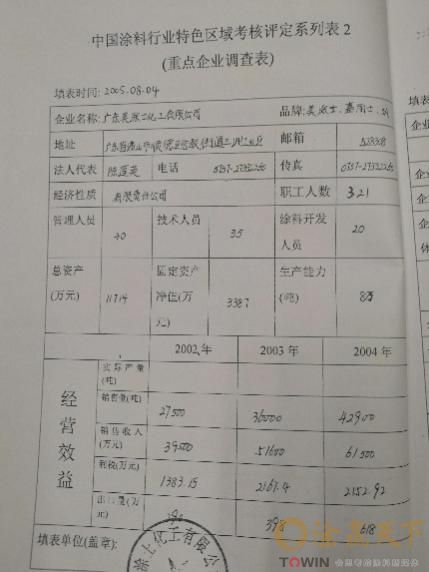 中国涂料行业特色区域考核评定系列表2
(重点企业调查表)
填表时间: 2005.08.04
企业名称: 广东美涂士化工有限公司 品牌: 美涂士、嘉
地址 广东省佛山市顺德区 邮箱 528308
法人代表 陈 电话 0757-27332 传真 0757-27332
经济性质 有限责任公司 职工人数 321
管理人员 40 技术人员 35 涂料开发人员 20
总资产(万元) 11914 固定资产净值(万元) 3387 生产能力(吨) 8万
2002年 2003年 2004年
经营效益
实际产量(吨)
销售量(吨) 27500 36000 42900
销售收入(万元) 39500 51600 61500
利税(万元) 1383.15 2167.4 2152.92
出口量(万元) 398 618
填表单位(盖章):
涂士化工有限公
涂料天下
TOWIN